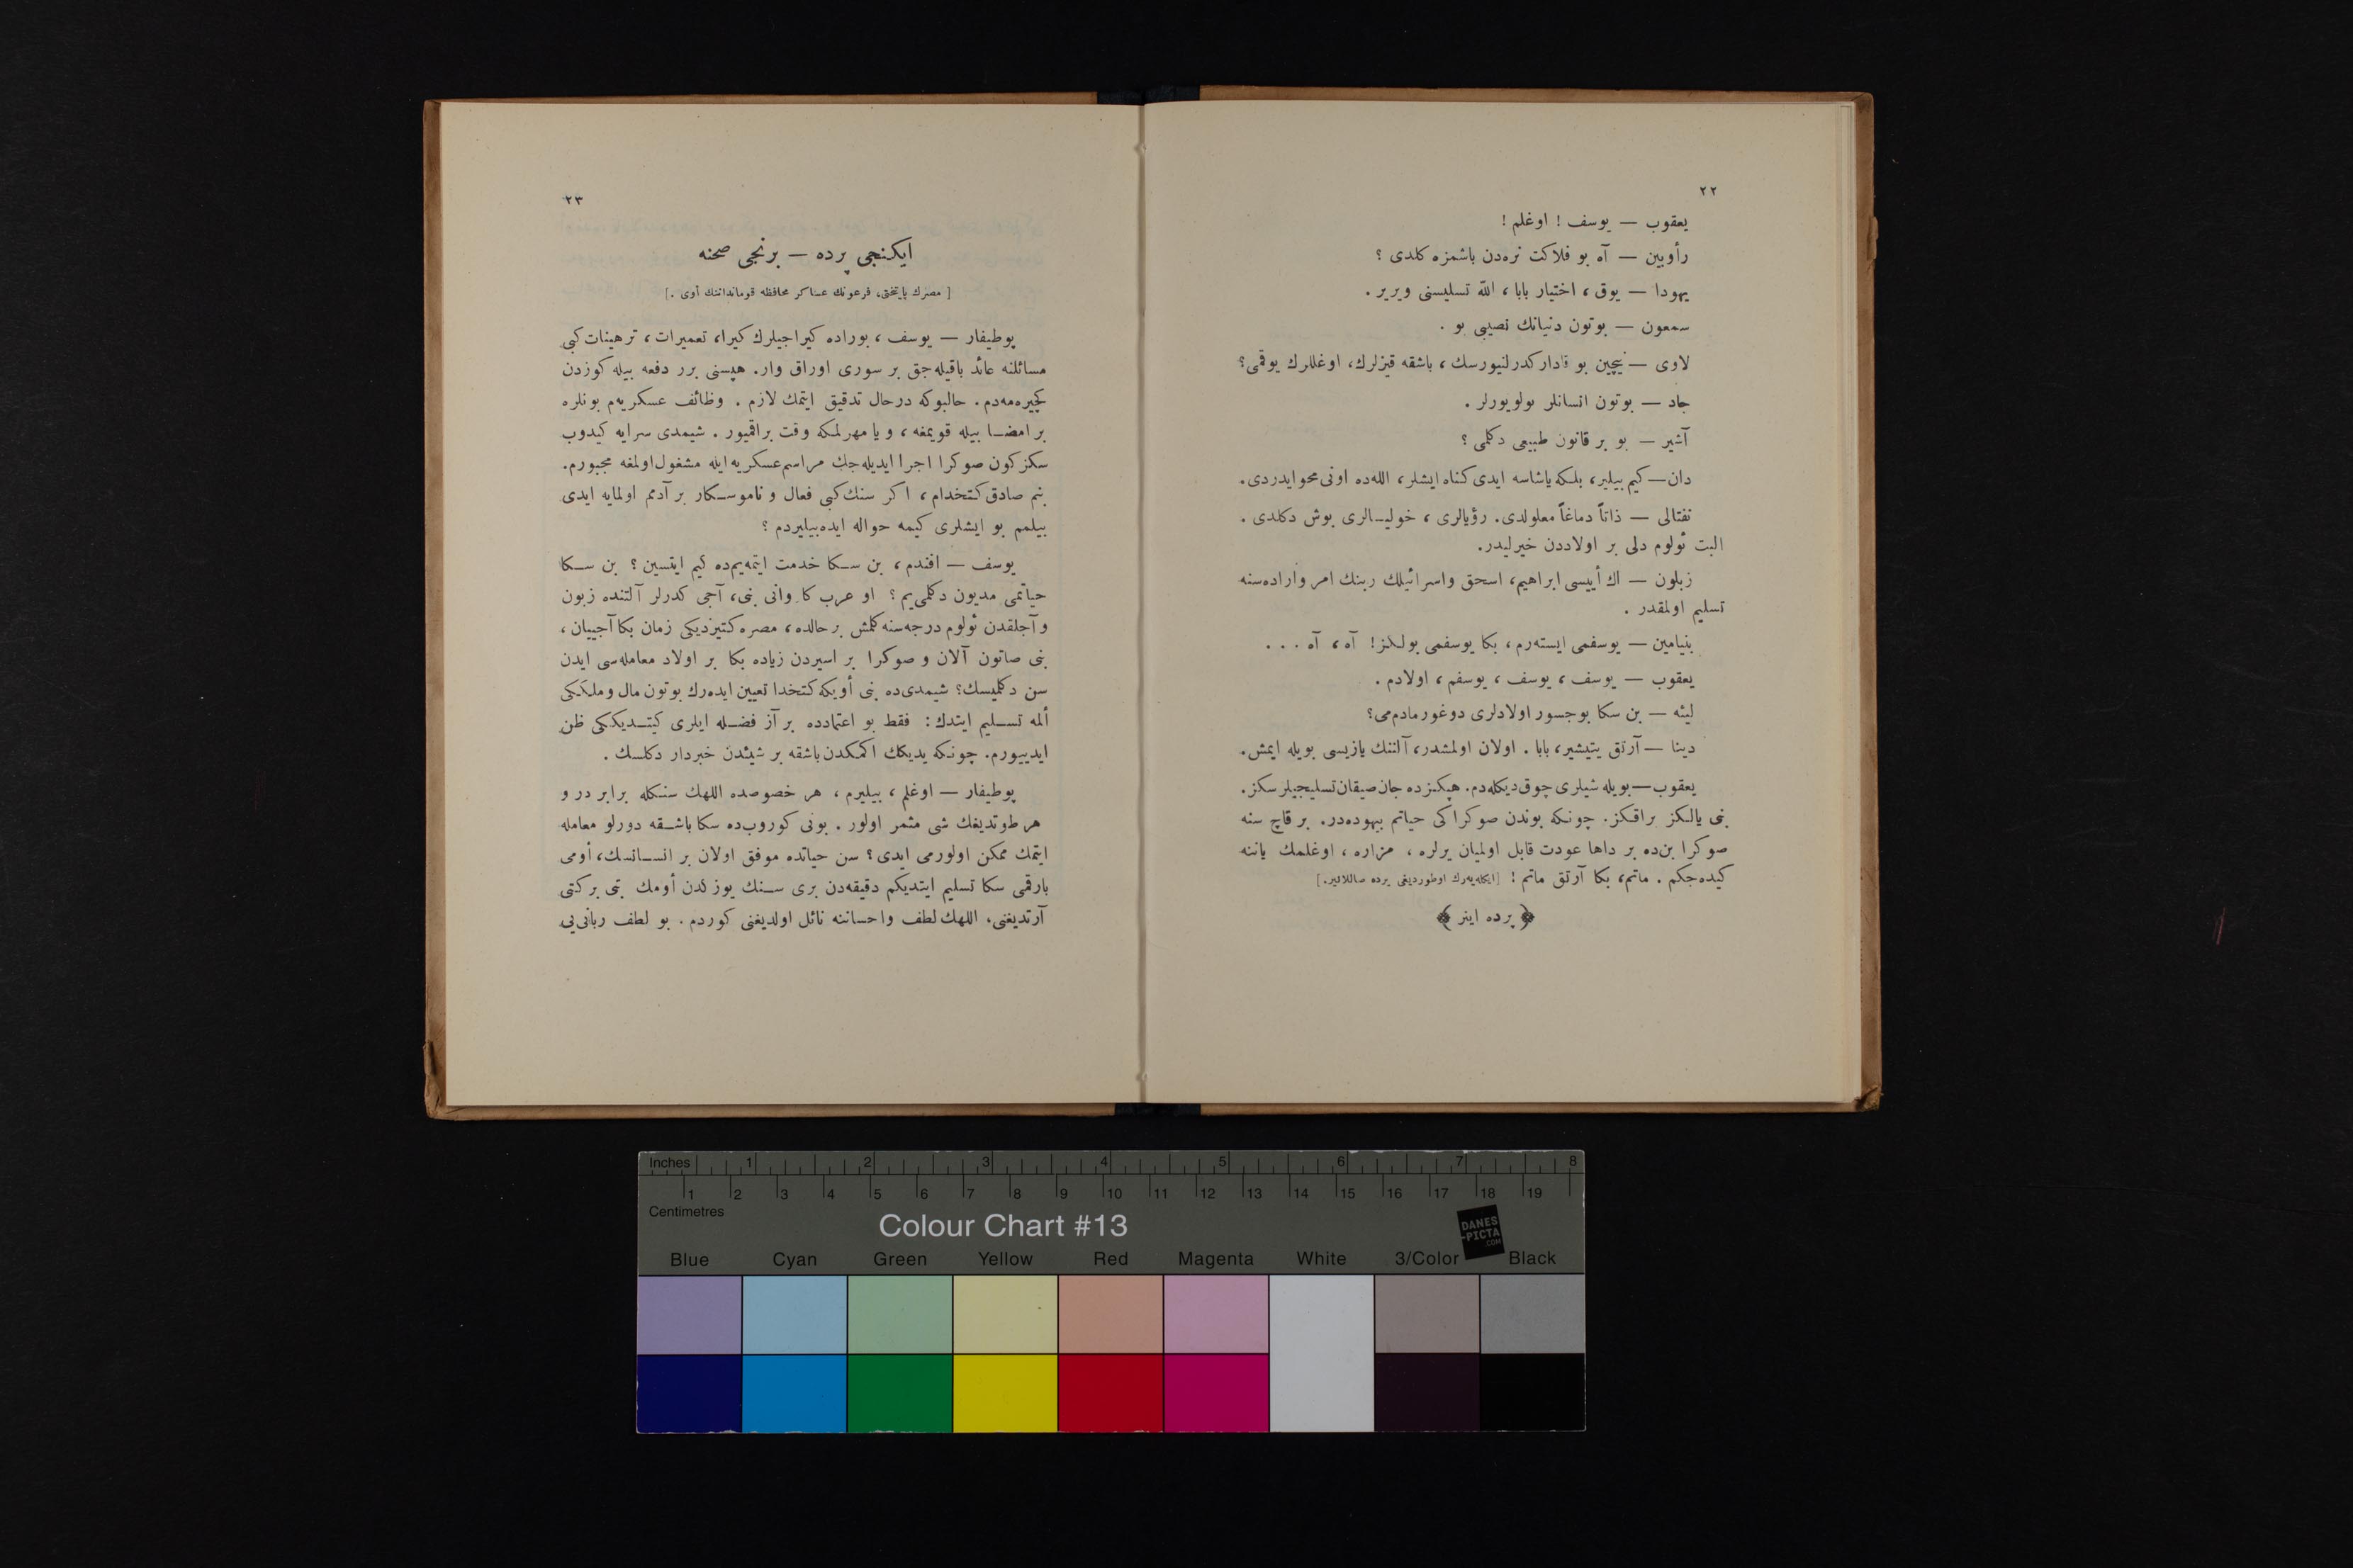 ٢٢
يعقوب — يوسف ! اوغلم !
رأوبين — آه بو فلاكت نره‌دن باشمزه كلدى ؟
يهودا — يوق ، اختيار بابا ، الله تسليسنى ويرير .
سمعون — بوتون دنيانك نصيبى بو .
لاوى — نيچين بو قادار كدرلنيورسك ، باشقه قيزلرك، اوغللرك يوقمى؟
جاد — بوتون انسانلر ئولويورلر .
آشير — بو بر قانون طبيعى دكلمى ؟
دان — كيم بيلير، بلكه ياشاسه ايدى كناه ايشلر، الله‌ده اونى محو ايدردى.
نفتالى — ذاتاً دماغاً معلولدى. رؤيالرى ، خوليـالرى بوش دكلدى .
البت ئولوم دلى بر اولاددن خيرليدر.
زبلون — اك أييسى ابراهيم، اسحق واسرائيلك ربنك امر واراده‌سنه
تسليم اولمقدر .
بنيامين — يوسفمى ايسته‌رم، بكا يوسفمى بولكز! آه، آه . . .
يعقوب — يوسف ، يوسف ، يوسفم ، اولادم .
ليئه — بن سكا بوجسور اولادلرى دوغورمادم‌مى؟
دينا — آرتق يتيشير، بابا . اولان اولمشدر، آلننك يازيسى بويله ايمش.
يعقوب — بويله شيلرى چوق ديكله‌دم. هپكزده جان صيقان تسليجيلرسكز.
بنى يالكز براقكز. چونكه بوندن صوكراكى حياتم بيهوده‌در. بر قاچ سنه
صوكرا بن‌ده بر داها عودت قابل اولميان يرلره ، مزاره ، اوغلمك ياننه
كيده‌جكم . ماتم، بكا آرتق ماتم ! [ايكله‌يه‌رك اوطورديغى يرده صاللانير.]
﴿ پرده اينر ﴾
٢٣
ايكنجى پرده — برنجى صحنه
[ مصرك پايتختى، فرعونك عساكر محافظه قومانداننك أوى .]
پوطيفار — يوسف ، بوراده كيراجيلرك كيرا، تعميرات ، ترهينات كبى
مسائلنه عائد باقيله‌جق بر سورى اوراق وار. هپسنى برر دفعه بيله كوزدن
كچيره‌مه‌دم . حالبوكه درحال تدقيق ايتمك لازم . وظائف عسكريه‌م بونلره
بر امضـا بيله قويمغه ، و يا مهرلمكه وقت براقميور . شيمدى سرايه كيدوب
سكز كون صوكرا اجرا ايديله‌جك مراسم عسكريه ايله مشغول اولمغه مجبورم.
بنم صادق كتخدام ، اكر سنك كبى فعال و ناموسـكار بر آدمم اولمايه ايدى
بيلمم بو ايشلرى كيمه حواله ايده‌بيليردم ؟
يوسف — افندم ، بن سـكا خدمت ايتمه‌يم‌ده كيم ايتسين ؟ بن سـكا
حياتمى مديون دكلمى‌يم ؟ او عرب كاروانى بنى، آجى كدرلر آلتنده زبون
و آجلقدن ئولوم درجه‌سنه كلمش بر حالده، مصره كتيرديكى زمان بكا آجييان ،
بنى صاتون آلان و صوكرا بر اسيردن زياده بكا بر اولاد معامله‌سى ايدن
سن دكلميسك؟ شيمدى‌ده بنى أويكه كتخدا تعيين ايده‌رك بوتون مال وملككى
ألمه تسـليم ايتدك : فقط بو اعتمادده بر آز فضـله ايلرى كيتـديككى ظن
ايدييورم. چونكه يديكك اكمكدن باشقه بر شيئدن خبردار دكلسك .
پوطيفار — اوغلم ، بيليرم ، هر خصوصده اللهك سنكله برابر در و
هر طوتديغك شى مثمر اولور . بونى كوروب‌ده سكا باشـقه دورلو معامله
ايتمك ممكن اولورمى ايدى ؟ سن حياتده موفق اولان بر انسـانسك، أومى
بارقمى سكا تسليم ايتديكم دقيقه‌دن برى سـنك يوزكدن أومك بى بركتى
آرتديغنى، اللهك لطف واحساننه نائل اولديغنى كوردم . بو لطف ربانى‌يى
Inches 1 2 3 4 5 6 7 8
1 2 3 4 5 6 7 8 9 10 11 12 13 14 15 16 17 18 19
Centimetres
Colour Chart #13
DANES
-PICTA
.COM
Blue Cyan Green Yellow Red Magenta White 3/Color Black